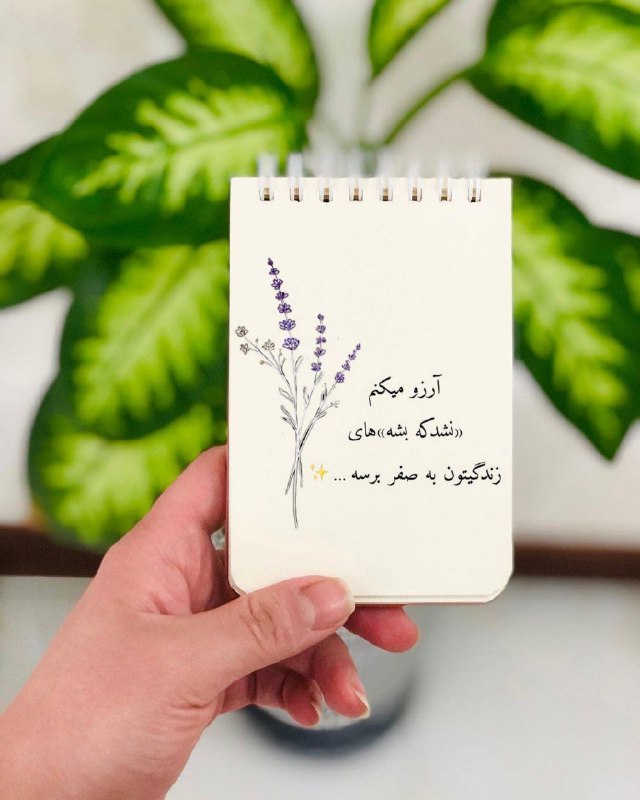 آرزو میکنم
((نشدکه بشه))های
زندگیتون به صفر برسه ...✨